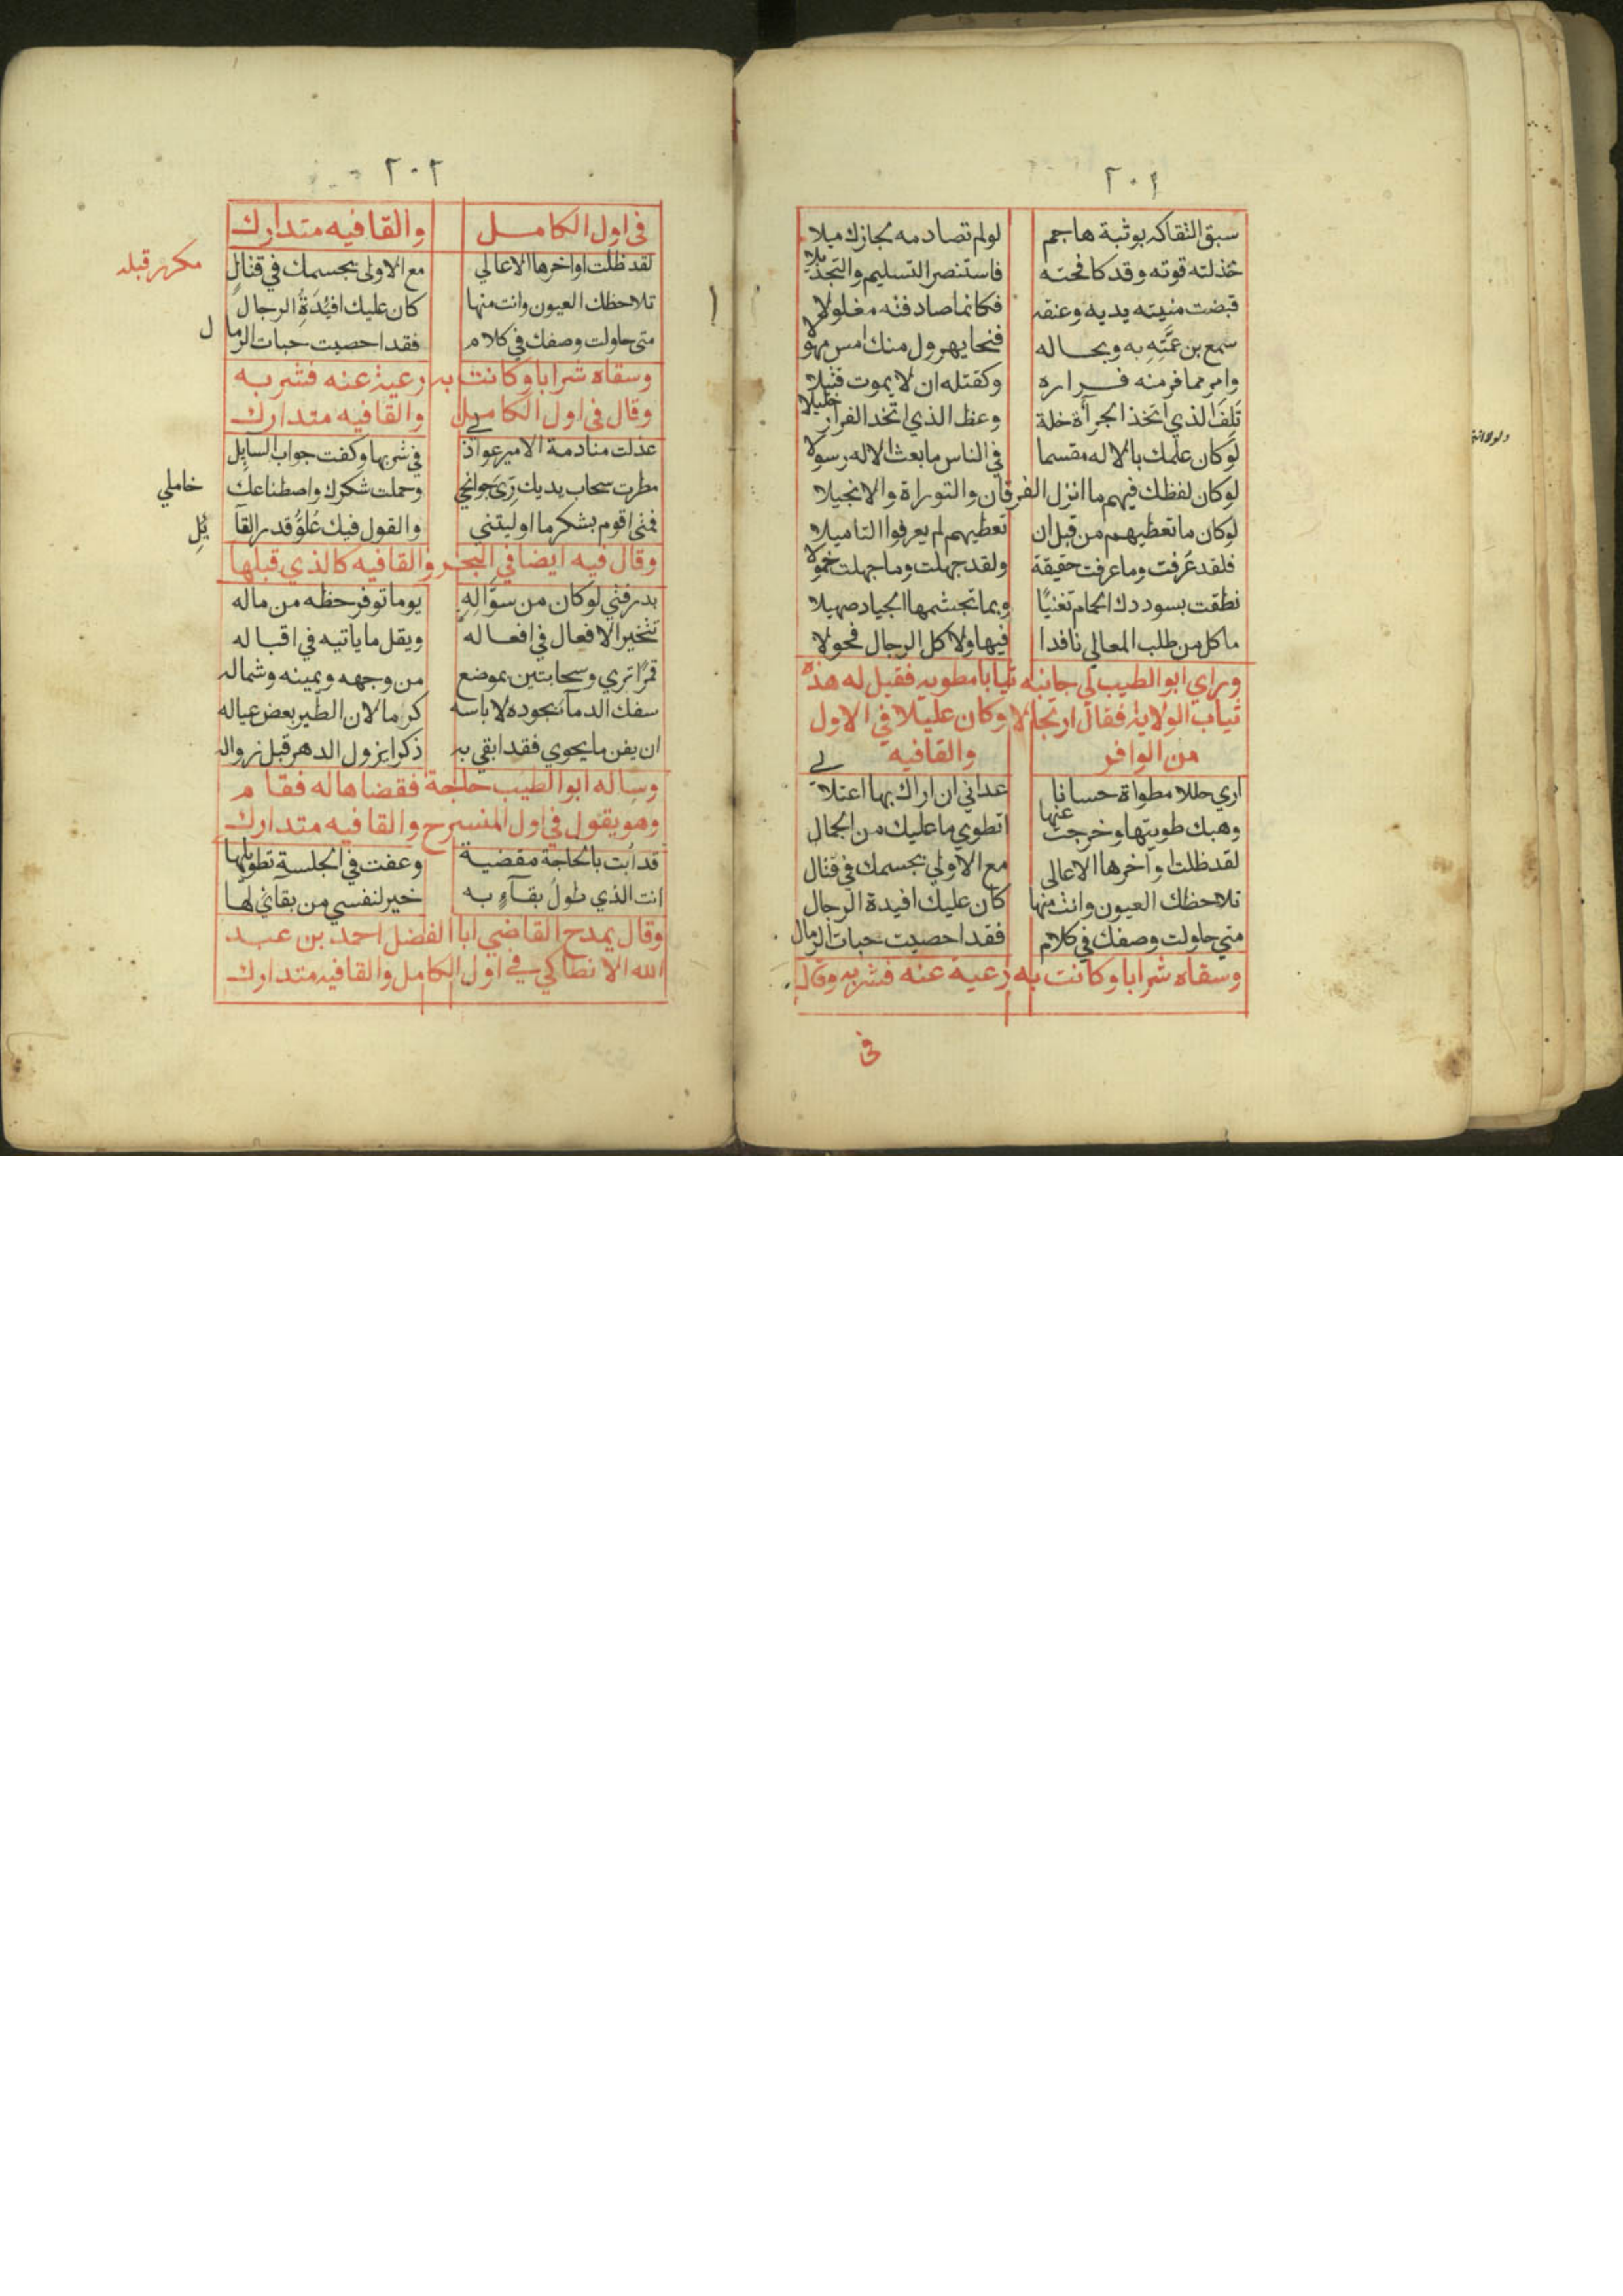 ٢٠١
سبق التقاكه بوثبة هاجم لولم تصادمه لجازك ميلا
خذلته قوته وقد كافحته فاستنصر التسليم والتجديلا
قبضت منيته يديه وعنقه فكانما صادفته مغلولا
سمع بن عمته به وبحاله فنحا يهرول منك امس مهولا
وامر مما فر منه فراره وكقتله ان لا يموت قتيلا
تلف الذي اتخذ الجرأة خلة وعظ الذي اتخد الفرار خليلا
لوكان علمك بالاله مقسما في الناس ما بعث الاله رسولا
لوكان لفظك فيهم ما انزل الفرقان والتوراة والانجيلا
لوكان ما تعطيهم من قبل ان تعطيهم لم يعرفوا التاميلا
فلقد عرفت وما عرفت حقيقة ولقد جهلت وما جهلت خمولا
نطقت بسوددك الحمام تغنيا وبما تجشمها الجياد صهيلا
ما كل من طلب المعالي نافدا فيها ولا كل الرجال فحولا
وراي ابو الطيب لي جانبه ثيابا مطويه فقيل له هذه
ثياب الولاية فقال ارتجالا وكان عليلا في الاول
من الوافر والقافيه
اري حللا مطواة حسانا عداني ان اراك بها اعتلا
وهبك طويتها وخرجت عنها اتطوي ما عليك من الجمال
لقد ظلت اواخرها الاعالي مع الاولي بجسمك في قتال
تلاحظك العيون وانت منها كان عليك افيدة الرجال
متي حاولت وصفك في كلام فقد احصيت حبات الرمال
وسقاه شرابا وكانت به رعية عنه فشربه وقال
في
٢٠٢
في اول الكامل والقافيه متدارك
لقد ظلت اواخرها الاعالي مع الاولى بجسمك في قتال
مكرر قبله
تلاحظك العيون وانت منها كان عليك افئدة الرجال
متى حاولت وصفك في كلام فقد احصيت حبات الرمال
وسقاه شرابا وكانت به رعية عنه فشربه
وقال في اول الكامل والقافيه متدارك
عذلت منادمة الامير عواذ في شربها وكفت جواب السايل
مطرت سحاب يديك ري جوانحي وحملت شكرك واصطناعك خاملي
فمتى اقوم بشكر ما اوليتني والقول فيك علو قدر القآ يل
وقال فيه ايضا في البحر والقافيه كالذي قبلها
بدر فتي لوكان من سؤاله يوما توفر حظه من ماله
تتخير الافعال في افعاله ويقل ما ياتيه في اقباله
قمرا تري وسحابتين بموضع من وجهه ويمينه وشماله
سفك الدمآ بجوده لا باسه كرما لان الطير بعض عياله
ان يفن ما يحوي فقد ابقي به ذكرا يزول الدهر قبل زواله
وساله ابو الطيب حاجة فقضاها له فقام
وهو يقول في اول المنسرح والقافيه متدارك
قد ابت بالحاجة مقضية وعفت في الجلسة تطويلها
انت الذي طول بقآء به خير لنفسي من بقائي لها
وقال يمدح القاضي ابا الفضل احمد بن عبد
الله الانطاكي في اول الكامل والقافيه متدارك